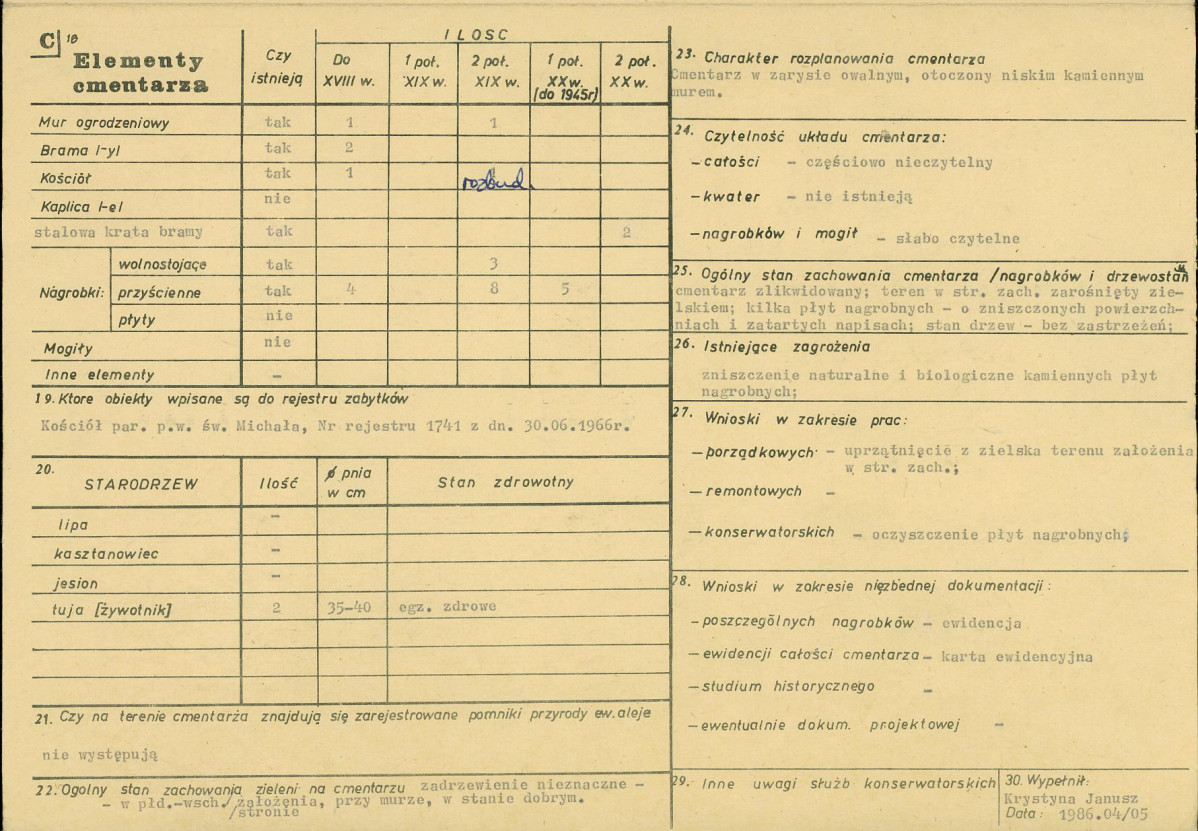 C 18
Elementy cmentarza
Czy istnieją
ILOSC
Do XVIII w.
1 poł. XIX w.
2 poł. XIX w.
1 poł. XX w. (do 1945r)
2 poł. XX w.
Mur ogrodzeniowy tak 1 1
Brama /-y/ tak 2
Kościół tak 1 rozbud.
Kaplica /-e/ nie
stalowa krata bramy tak 2
Nagrobki: wolnostojące tak 3
przyścienne tak 4 8 5
płyty nie
Mogiły nie
Inne elementy -
19. Ktore obiekty wpisane są do rejestru zabytków
Kościół par. p.w. św. Michała, Nr rejestru 1741 z dn. 30.06.1966r.
20.
STARODRZEW Ilość ø pnia w cm Stan zdrowotny
lipa -
kasztanowiec -
jesion -
tuja [żywotnik] 2 35-40 egz. zdrowe
21. Czy na terenie cmentarza znajdują się zarejestrowane pomniki przyrody ew. aleje
nie występują
22. Ogolny stan zachowania zieleni na cmentarzu zadrzewienie nieznaczne -
- w płd.-wsch./założenia, przy murze, w stanie dobrym.
/stronie
23. Charakter rozplanowania cmentarza
Cmentarz w zarysie owalnym, otoczony niskim kamiennym
murem.
24. Czytelność układu cmentarza:
- całości - częściowo nieczytelny
- kwater - nie istnieją
- nagrobków i mogił - słabo czytelne
25. Ogólny stan zachowania cmentarza /nagrobków i drzewostan
cmentarz zlikwidowany; teren w str. zach. zarośnięty zie-
lskiem; kilka płyt nagrobnych - o zniszczonych powierzch-
niach i zatartych napisach; stan drzew - bez zastrzeżeń;
26. Istniejące zagrożenia
zniszczenie naturalne i biologiczne kamiennych płyt
nagrobnych;
27. Wnioski w zakresie prac:
- porządkowych - uprzątnięcie z zielska terenu założenia
w str. zach.;
- remontowych -
- konserwatorskich - oczyszczenie płyt nagrobnych;
28. Wnioski w zakresie niezbędnej dokumentacji:
- poszczególnych nagrobków - ewidencja
- ewidencji całości cmentarza - karta ewidencyjna
- studium historycznego -
- ewentualnie dokum. projektowej -
29. Inne uwagi służb konserwatorskich
30. Wypełnił:
Krystyna Janusz
Data: 1986.04/05